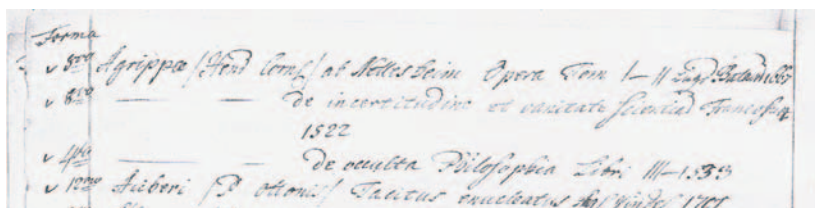 Forma
v 8vo Agrippæ /Henr Corn/ ab Nettesheim Opera Tom I–II Lugd Batav
v 8vo — — De incertitudine et vanitate Scientiar Francofurt
1522
v 4to — — De occulta Philosophia Libri III–1533
v 12mo Auberi /D ottonis/ Tacitus enucleatus 1701